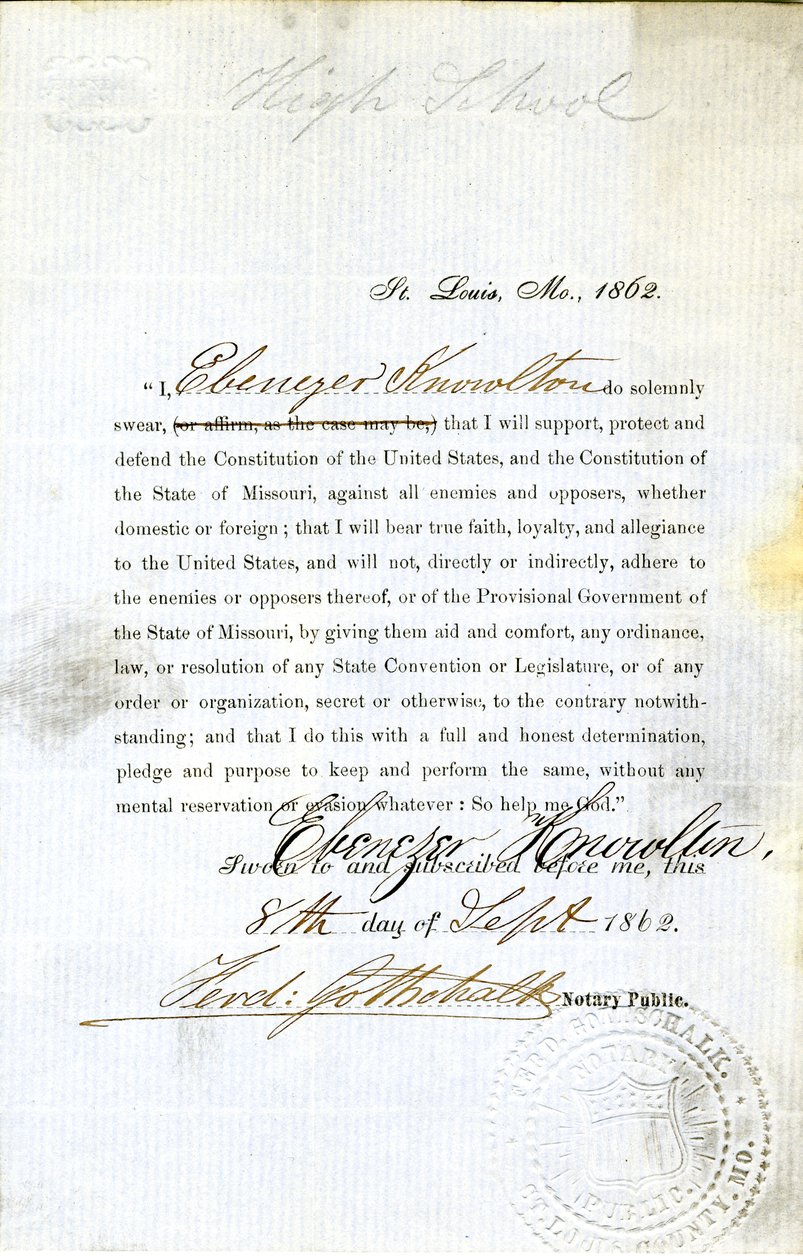 High School
St. Louis, Mo., 1862.
"I, Ebenezer Knowlton do solemnly
swear, (or affirm, as the case may be,) that I will support, protect and
defend the Constitution of the United States, and the Constitution of
the State of Missouri, against all enemies and opposers, whether
domestic or foreign ; that I will bear true faith, loyalty, and allegiance
to the United States, and will not, directly or indirectly, adhere to
the enemies or opposers thereof, or of the Provisional Government of
the State of Missouri, by giving them aid and comfort, any ordinance,
law, or resolution of any State Convention or Legislature, or of any
order or organization, secret or otherwise, to the contrary notwith-
standing; and that I do this with a full and honest determination,
pledge and purpose to keep and perform the same, without any
mental reservation or evasion whatever : So help me God."
Ebenezer Knowlton.
Sworn to and subscribed before me, this
8th day of Sept 1862.
Ferd: Gottschalk Notary Public.
FERD. GOTTSCHALK.
NOTARY
PUBLIC.
ST. LOUIS COUNTY, MO.